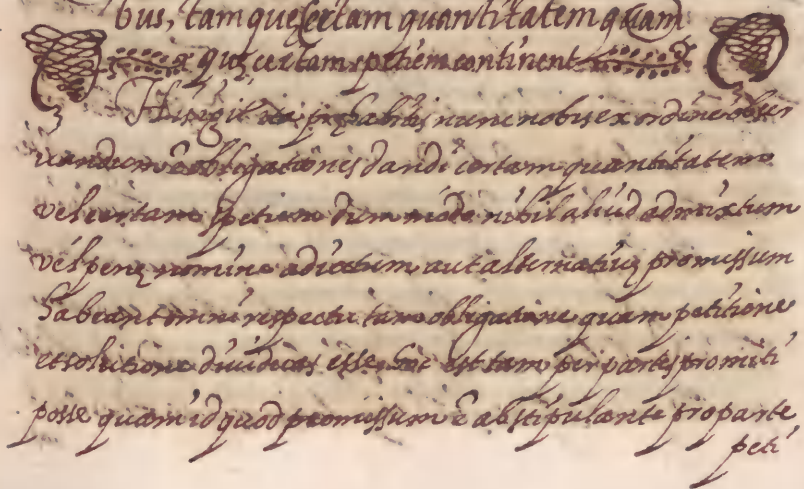 bus, tam quę certam quantitatem quam
quę certam spetiem continent
Hinc igit ita pręhabitis nunc nobis ex ordine obser
uandum ē obligationes dandi certam quantitatem
vel certam spetiem dum modo nihil aliud admixtum
vel penę nomine adiectum aut alternatiuę promissum
habeant omni respectu tam obligatione quam petitione
et solutione diuiduas esse hoc est tam per partes promiti
posse quam id quod promissum ē ab stipulante pro parte
peti